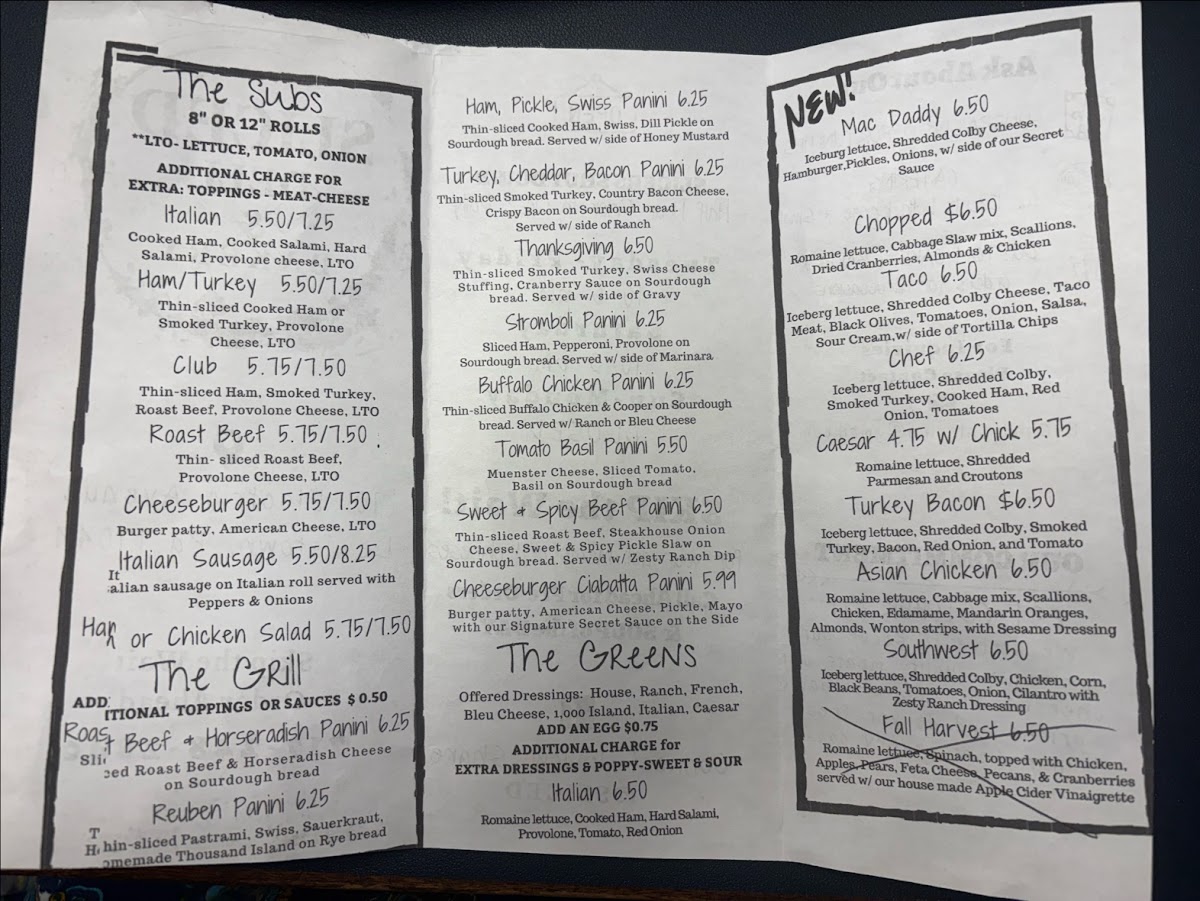 The Subs
8" OR 12" ROLLS
**LTO- LETTUCE, TOMATO, ONION
ADDITIONAL CHARGE FOR
EXTRA: TOPPINGS - MEAT-CHEESE
Italian 5.50/7.25
Cooked Ham, Cooked Salami, Hard
Salami, Provolone cheese, LTO
Ham/Turkey 5.50/7.25
Thin-sliced Cooked Ham or
Smoked Turkey, Provolone
Cheese, LTO
Club 5.75/7.50
Thin-sliced Ham, Smoked Turkey,
Roast Beef, Provolone Cheese, LTO
Roast Beef 5.75/7.50
Thin- sliced Roast Beef,
Provolone Cheese, LTO
Cheeseburger 5.75/7.50
Burger patty, American Cheese, LTO
Italian Sausage 5.50/8.25
Italian sausage on Italian roll served with
Peppers & Onions
Ham or Chicken Salad 5.75/7.50
The Grill
ADDITIONAL TOPPINGS OR SAUCES $ 0.50
Roast Beef & Horseradish Panini 6.25
Sliced Roast Beef & Horseradish Cheese
on Sourdough bread
Reuben Panini 6.25
Thin-sliced Pastrami, Swiss, Sauerkraut,
Homemade Thousand Island on Rye bread
Ham, Pickle, Swiss Panini 6.25
Thin-sliced Cooked Ham, Swiss, Dill Pickle on
Sourdough bread. Served w/ side of Honey Mustard
Turkey, Cheddar, Bacon Panini 6.25
Thin-sliced Smoked Turkey, Country Bacon Cheese,
Crispy Bacon on Sourdough bread.
Served w/ side of Ranch
Thanksgiving 6.50
Thin-sliced Smoked Turkey, Swiss Cheese
Stuffing, Cranberry Sauce on Sourdough
bread. Served w/ side of Gravy
Stromboli Panini 6.25
Sliced Ham, Pepperoni, Provolone on
Sourdough bread. Served w/ side of Marinara
Buffalo Chicken Panini 6.25
Thin-sliced Buffalo Chicken & Cooper on Sourdough
bread. Served w/ Ranch or Bleu Cheese
Tomato Basil Panini 5.50
Muenster Cheese, Sliced Tomato,
Basil on Sourdough bread
Sweet & Spicy Beef Panini 6.50
Thin-sliced Roast Beef, Steakhouse Onion
Cheese, Sweet & Spicy Pickle Slaw on
Sourdough bread. Served w/ Zesty Ranch Dip
Cheeseburger Ciabatta Panini 5.99
Burger patty, American Cheese, Pickle, Mayo
with our Signature Secret Sauce on the Side
The Greens
Offered Dressings: House, Ranch, French,
Bleu Cheese, 1,000 Island, Italian, Caesar
ADD AN EGG $0.75
ADDITIONAL CHARGE for
EXTRA DRESSINGS & POPPY-SWEET & SOUR
Italian 6.50
Romaine lettuce, Cooked Ham, Hard Salami,
Provolone, Tomato, Red Onion
NEW!
Mac Daddy 6.50
Iceburg lettuce, Shredded Colby Cheese,
Hamburger,Pickles, Onions, w/ side of our Secret
Sauce
Chopped $6.50
Romaine lettuce, Cabbage Slaw mix, Scallions,
Dried Cranberries, Almonds & Chicken
Taco 6.50
Iceberg lettuce, Shredded Colby Cheese, Taco
Meat, Black Olives, Tomatoes, Onion, Salsa,
Sour Cream,w/ side of Tortilla Chips
Chef 6.25
Iceberg lettuce, Shredded Colby,
Smoked Turkey, Cooked Ham, Red
Onion, Tomatoes
Caesar 4.75 w/ Chick 5.75
Romaine lettuce, Shredded
Parmesan and Croutons
Turkey Bacon $6.50
Iceberg lettuce, Shredded Colby, Smoked
Turkey, Bacon, Red Onion, and Tomato
Asian Chicken 6.50
Romaine lettuce, Cabbage mix, Scallions,
Chicken, Edamame, Mandarin Oranges,
Almonds, Wonton strips, with Sesame Dressing
Southwest 6.50
Iceberg lettuce, Shredded Colby, Chicken, Corn,
Black Beans, Tomatoes, Onion, Cilantro with
Zesty Ranch Dressing
Fall Harvest 6.50
Romaine lettuce, Spinach, topped with Chicken,
Apples, Pears, Feta Cheese, Pecans, & Cranberries
served w/ our house made Apple Cider Vinaigrette